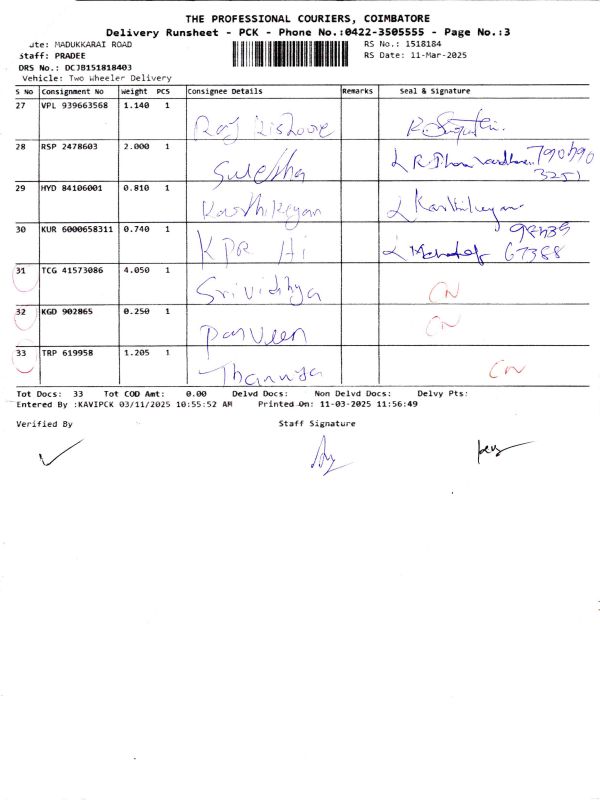 THE PROFESSIONAL COURIERS, COIMBATORE
Delivery Runsheet - PCK - Phone No.:0422-3505555 - Page No.:3
ute: MADUKKARAI ROAD RS No.: 1518184
Staff: PRADEE RS Date: 11-Mar-2025
DRS No.: DCJB151818403
Vehicle: Two Wheeler Delivery
S No Consignment No Weight PCS Consignee Details Remarks Seal & Signature
27 VPL 939663568 1.140 1 Raj Kishore
28 RSP 2478603 2.000 1 Suletha
29 HYD 84106001 0.810 1 Karthikeyan Karthikeyan
30 KUR 6000658311 0.740 1 67388
31 TCG 41573086 4.050 1 Srividhya CN
32 KGD 902865 0.250 1 Parveen CN
33 TRP 619958 1.205 1 CN
Tot Docs: 33 Tot COD Amt: 0.00 Delvd Docs: Non Delvd Docs: Delvy Pts:
Entered By :KAVIPCK 03/11/2025 10:55:52 AM Printed On: 11-03-2025 11:56:49
Verified By Staff Signature